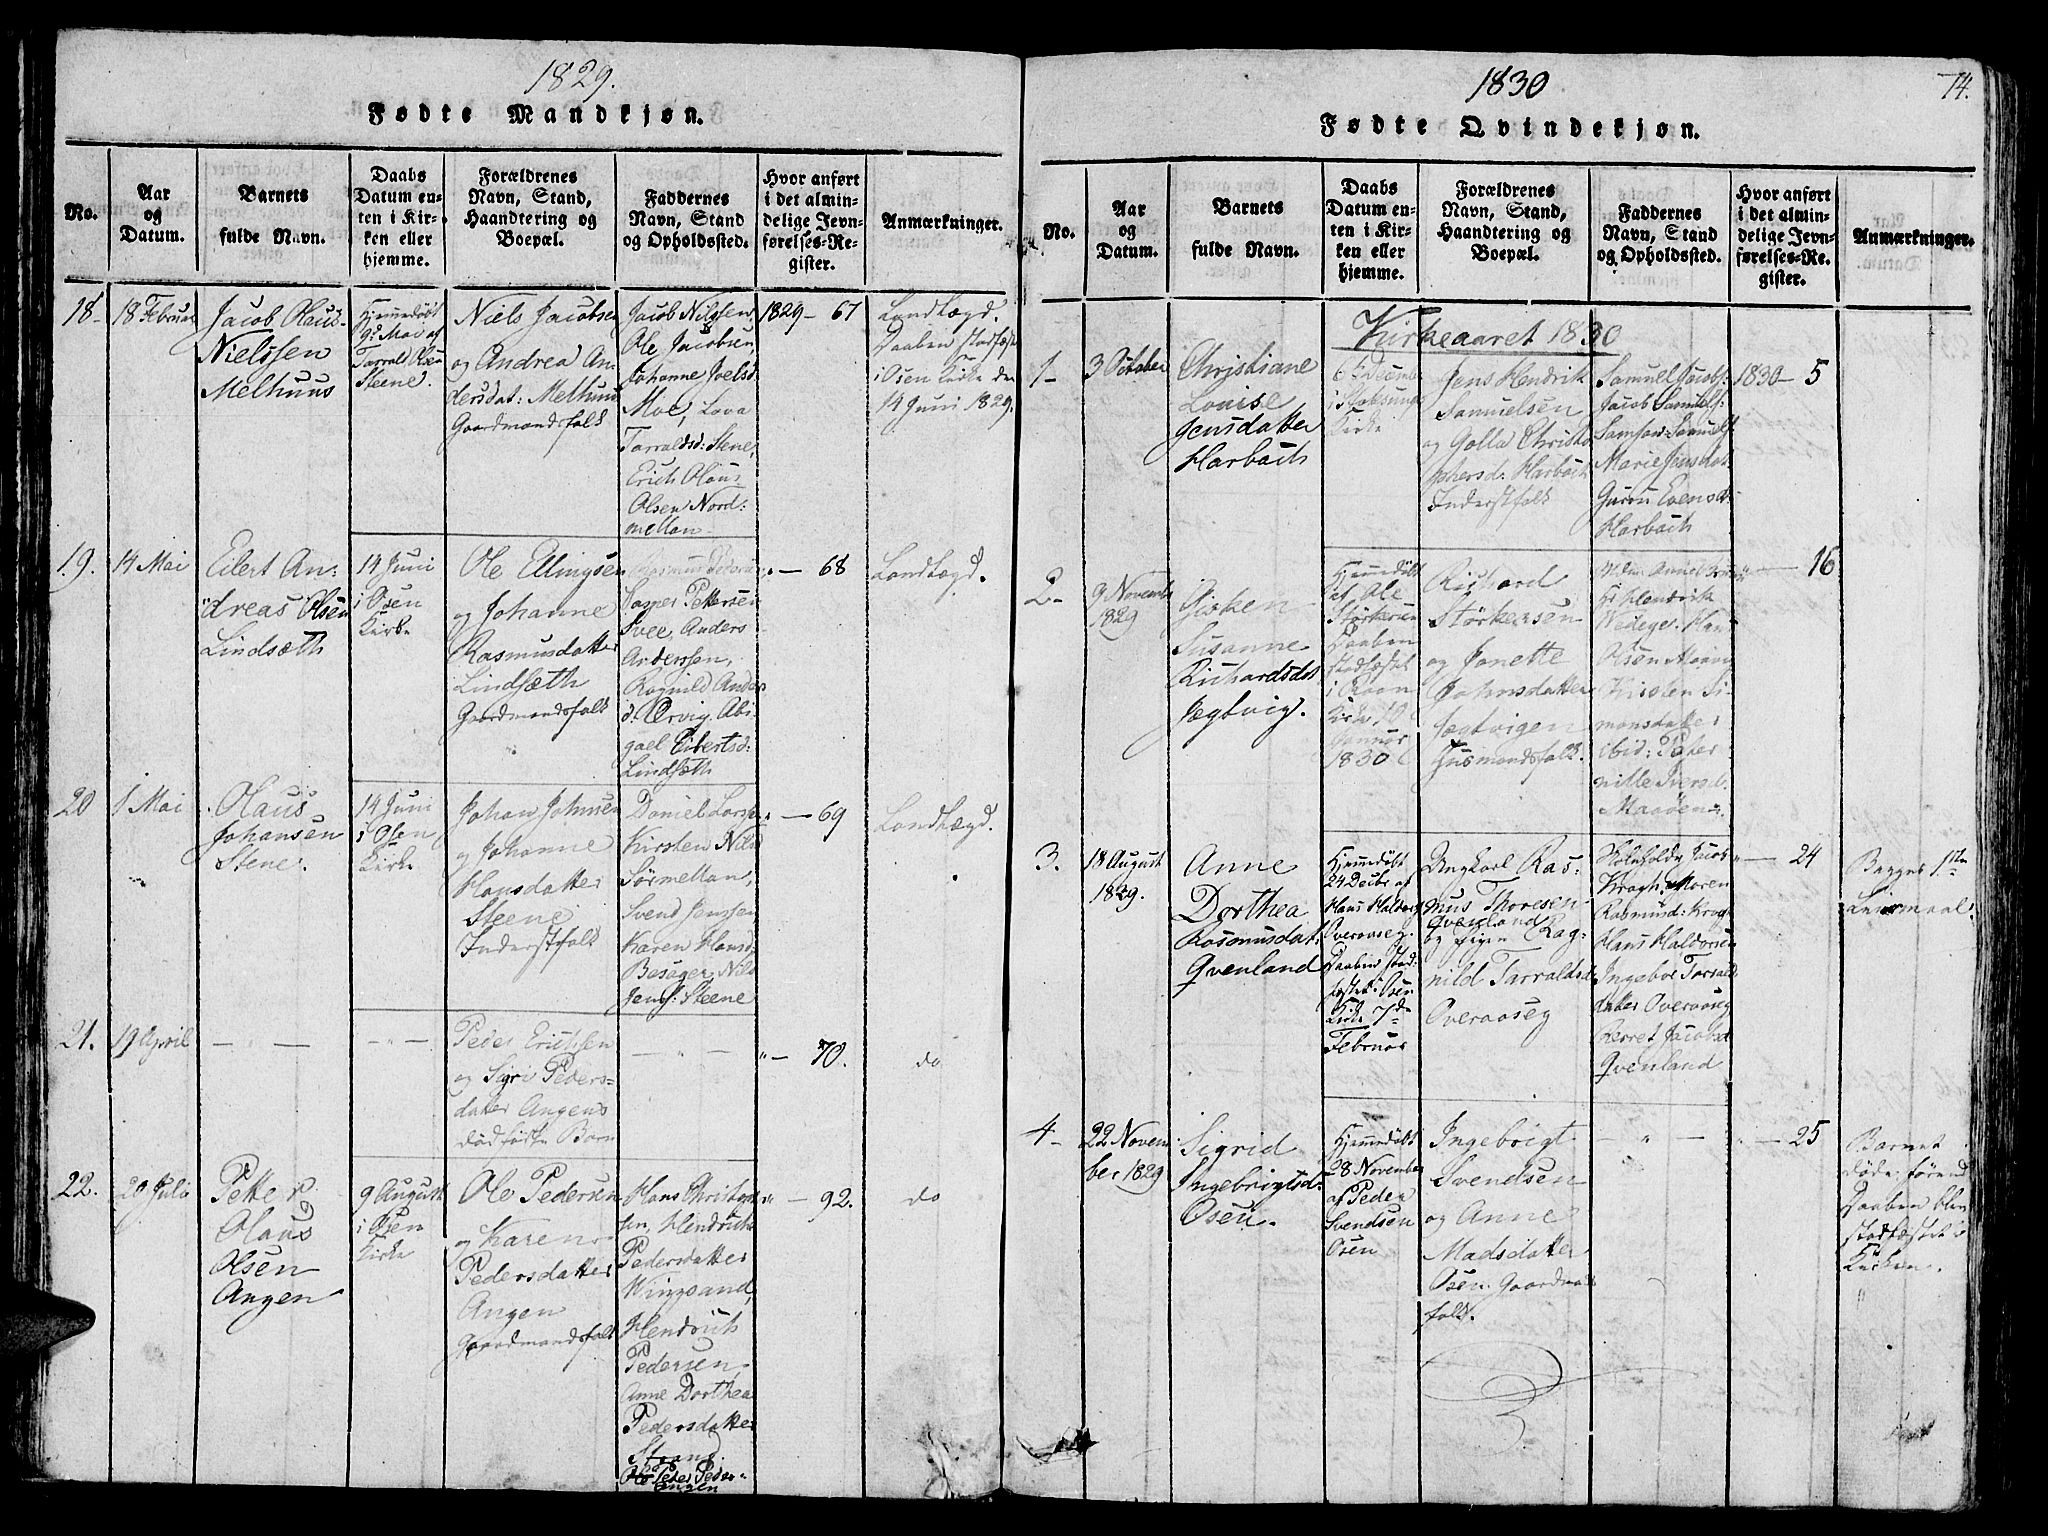 1829.
Fødte Mandkjøn.
No.
Aar
og
Datum.
Barnets
fulde Navn.
Daabs
Datum en-
ten i Kir-
ken eller
hjemme.
Forældrenes
Navn, Stand,
Haandtering og
Boepæl.
Faddernes
Navn, Stand
og Opholdssted.
Hvor anført
i det almin-
delige Jevn-
førelses-Re-
gister.
Anmærkninger.
18-
18 Februar
Jacob Olaus
Nielssen
Melhuus
Hjemmedøbt
9d Mai af
Tarrald Olsen
Steene.
Niels Jacobsen
og Andrea An-
dersdat: Melhuus
Gaardmandsfolk
Jacob Nilssen,
Ole Jacobsen,
Johanne Joelsd
Moe, Lova
Tarraldsd: Stene,
Erich Olaus
Olsen Nord-
mellan
1829 - 67
Landtægd.
Daaben stadfæst
i Osen Kirke den
14 Juni 1829.
19.
14 Mai
Eilert An-
dreas Olsen
Lindsæth
14 Juni
i Osen
Kirke
Ole Ellingsen
og Johanne
Rasmusdatter
Lindsæth
Gaardmandsfolk
Casper Pettersen
Svee, Anders
Anderssen,
Ragnild Anders
d: Ervig, Abi-
gael Eilertsd:
Lindsæth
" - 68
Landtægd.
20
1 Mai
Olaus
Johansen
Stene.
14 Juni
i Osen
Kirke
Johan Johnsen
og Johanne
Hansdatter
Steene
Inderstfolk
Daniel Lars
Kirsten Nils
Sørmellan,
Svend Jenssen
Karen Hansd:
Besager, Nils
Jens: Steene
" - 69
Landtægd.
21.
19 April
- " -
- " -
Peder Erichsen
og Sigri Peders-
datter Angens
dødfødte Barn
- " -
" - 70.
do
22.
20 Juli
Petter
Olaus
Olsen
Angen
9 August
i Osen
Kirke
Ole Pedersen
og Karen
Pedersdatter
Angen
Gaardmandsfolk
Hans Christian
sen, Hendrich
Pedersdatter
Wingsand,
Hendrich
Pedersen,
Anne Dorthea
Pedersdatter
Strand
Peter Peder-
Angen
" - 92.
do
1830
14.
Fødte Qvindekjøn.
No.
Aar
og
Datum.
Barnets
fulde Navn.
Daabs
Datum en-
ten i Kir-
ken eller
hjemme.
Forældrenes
Navn, Stand,
Haandtering og
Boepæl.
Faddernes
Navn, Stand
og Opholdssted.
Hvor anført
i det almin-
delige Jevn-
førelses-Re-
gister.
Anmærkninger.
Kirkeaaret 1830
1-
3 October
Christiane
Louise
Jensdatter
Harbach
6te Decemb
i Stoksunds
Kirke
Jens Hendrik
Samuelsen
og Golla Christo
phersd: Harbach
Inderstfolk
Samuel Jacobs:
Jacob Samuels:
Samson Samuels
Marie Jensdat
Guren Evensd:
Harbach
1830 - 5
2-
9 Novemb
1829
Giøken
Susanne
Richardsdt
Jægtvig.
Hjemmedøbt
af Ole
Størkersen
Daaben
stadfæstet
i Roan
Kirke 10
Januar
1830
Richard
Størkersen
og Janette
Johnsdatter
Jægtvigen
Huusmandsfolk.
Hendrik
Wedege, Hans
Olsen
Kirsten Si-
monsdatter
ibid: Peter
nille Iversd:
Maaøen
" - 16
3.
18 August
1829.
Anne
Dorthea
Rasmusdat
Qvenland
Hjemmedøbt
24 Decbr af
Hans Haldors
Overaaseg.
Daaben stad-
fæstet i Osen
Kirke 7de
Februar
Ungkarl Ras-
mus Thoresen
Qvenland
og Pigen Rag-
nild Tarraldsd
Overaaseg
Jacob
Kragh, Maren
Rasmusd: Krag
Hans Haldorsen
Ingebor Tarrald
datter Overaaseg
Berret Jacobsd
Qvenland
" - 24
Begges 1ste
Leiermaal.
4-
22 Novem-
ber 1829
Sigrid
Ingebrigtsd:
Osen.
Hjemmedøbt
28 November
af Peder
Svendsen
Osen
Ingebrigt
Svendsen
og Anne
Madsdatter
Osen Gaardmands
folk.
- " -
" - 25
Barnet
døde førend
Daaben blev
stadfæstet i
Kirken.